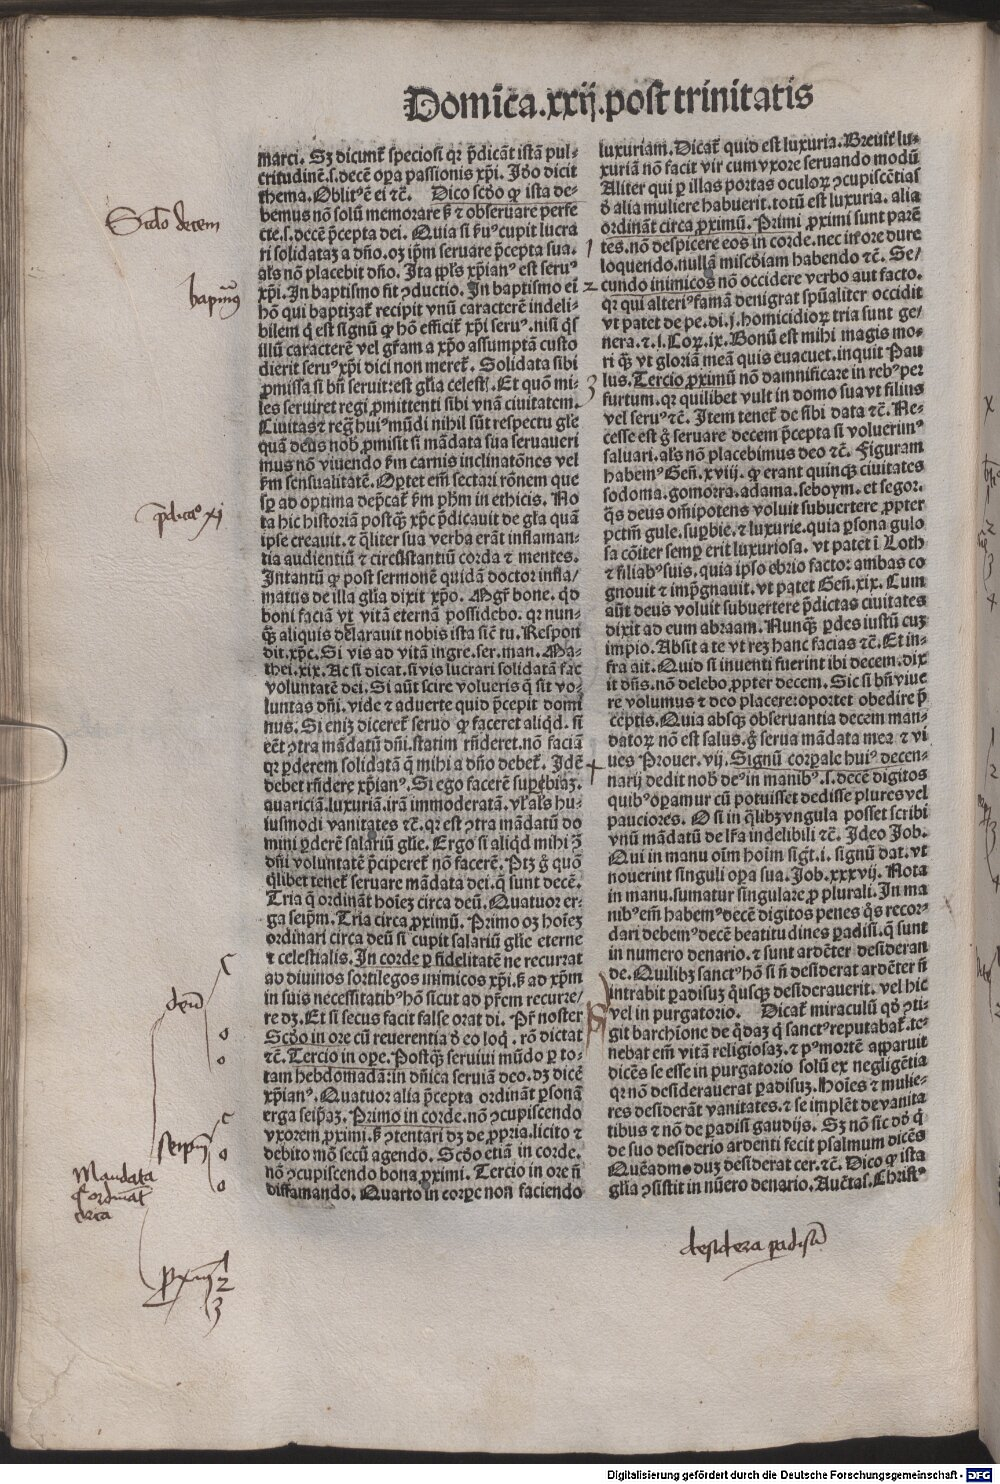 Domĩca.xxij.post trinitatis
marci. Sʒ dicunt̃ speciosi qr p̃dicãt istã pul-
critudinẽ.s.decẽ oꝑa passionis xp̃i. Jdo dicit
thema. Oblitꝰẽ ei ⁊c̃. Dico scdo qꝫ ista de-
bemus nõ solũ memorare sꝫ ⁊ obseruare perfe
cte.s.decẽ p̃cepta dei. Quia si p̃uꝰ cupit lucra
ri solidataʒ a dño.oʒ ip̃m seruare p̃cepta sua.
als nõ placebit dño. Jta xp̃ianꝰ est seruꝰ
xp̃i. In baptismo fit ꝯductio. In baptismo ei
hõ qui baptizat̃ recipit vnũ caracterẽ indeli-
bilem q̃ est signũ qꝫ hõ efficit̃ xp̃i seruꝰ.nisi q̃s
illũ caracterẽ vel gr̃am a xp̃o assumptã custo
dierit seruꝰ xp̃i dici non meret̃. Solidata sibi
ꝓmissa si bñ seruit:est gl̃ia celestꝭ. Et quõ mi-
les seruiret regi ꝓmittenti sibi vnã ciuitatem.
Ciuitas ⁊ regñ huiꝰ mũdi nihil sũt respectu gl̃e
quã deus nob̃ ꝓmisit si mãdata sua seruaueri
mus nõ viuendo s̃m carnis inclinatões vel
s̃m sensualitatẽ. Oꝑtet em̃ sectari rõnem que
sp̃ ad optima dep̃cat̃ s̃m ph̃m in ethicis. No
ta hic historiã postqꝫ xp̃c p̃dicauit de gl̃a quã
ipse creauit.⁊ q̃liter sua verba erãt inflaman-
tia audientiũ ⁊ circũstantiũ corda ⁊ mentes.
Intantũ qꝫ post sermonẽ quidã doctor infla/
matus de illa gl̃ia dixit xp̃o. Mgr̃ bone. qd̃
boni faciã vt vitã eternã possidebo. qr nun-
qꝫ aliquis declarauit nobis ista sic̃ tu. Respon
dit.xp̃c. Si vis ad vitã ingre.ser.man. Ma-
thei.xix. Ac si dicat.si vis lucrari solidatã fac
voluntatẽ dei. Si aũt scire volueris q̃ sit vo-
luntas dñi.vide ⁊ aduerte quid p̃cepit domi
nus. Si eniʒ diceret̃ seruo qꝫ faceret aliqd. si
eẽt ꝯtra mãdatũ dñi.statim rñderet.nõ faciã
qr ꝑderem solidatã q̃ mihi a dño debet̃. Jdẽ
debet rñdere xp̃ianꝰ. Si ego facerẽ suꝑbiaʒ.
auariciã.luxuriã.irã immoderatã.vl̃ als hu-
iusmodi vanitates ⁊c̃.qr est ꝯtra mãdatũ do
mini ꝑderẽ salariũ gl̃ie. Ergo si aliqd mihi ꝯ̃
dñi voluntatẽ p̃ciperet̃ nõ facerẽ. Ptʒ g̃ quõ
q̃libet tenet̃ seruare mãdata dei.q̃ sunt decẽ.
Tria q̃ ordinãt hoieʒ circa deũ. Quatuor er-
ga seip̃m. Tria circa ꝓximũ. Primo oʒ hoieʒ
ordinari circa deũ si cupit salariũ gl̃ie eterne
⁊ celestialis. In corde ꝑ fidelitatẽ ne recurrat
ad diuinos sortilegos inimicos xp̃i.sꝫ ad xp̃m
in suis necessitatibꝰ hõ sicut ad pr̃em recurre/
re dʒ. Et si secus facit false orat di. Pr̃ noster
Scdo in ore cũ reuerentia d̃o eo loq̃. rõ dictat
⁊c̃. Tercio in oꝑe. Postqꝫ seruiui mũdo ꝑ to-
tam hebdomadã:in dñica seruiã deo.dʒ dicẽ
xp̃ianꝰ. Quatuor alia p̃cepta ordinãt ꝑsonã
erga seip̃aʒ. Primo in corde.nõ ꝯcupiscendo
vxorem ꝓximi.sꝫ ꝯtentari dʒ de ꝓpria.licito ⁊
debito mõ secũ agendo. Scdo etiã in corde.
nõ ꝯcupiscendo bona ꝓximi. Tercio in ore ñ
diffamando. Quarto in corꝑe non faciendo
luxuriam. Dicat̃ quid est luxuria. Breuit̃ lu-
xuriã nõ facit vir cum vxore seruando modũ
Aliter qui ꝑ illas portas oculoꝝ ꝯcupiscẽtias
d̃ alia muliere habuerit.totũ est luxuria. alia
ordinãt circa ꝓximũ. Primi ꝓximi sunt parẽ
tes.nõ despicere eos in corde.nec in ore dure
loquendo.nullã miscdiam habendo ⁊c̃. Se/
cundo inimicos nõ occidere verbo aut facto.
qr qui alteriꝰ famã denigrat spũaliter occidit
vt patet de pe.di.j.homicidioꝝ tria sunt ge/
nera.⁊.i.Coꝝ.ix. Bonũ est mihi magis mo-
ri qꝫ vt gloriã meã quis euacuet.inquit Pau
lus. Tercio ꝓximũ nõ damnificare in rebꝰ per
furtum.qr quilibet vult in domo sua vt filius
vel seruꝰ ⁊c̃. Jtem tenet̃ de sibi data ⁊c̃. Ne-
cesse est g̃ seruare decem p̃cepta si voluerimꝰ
saluari.als nõ placebimus deo ⁊c̃. Figuram
habemꝰ Geñ.xviij. qꝫ erant quinqꝫ ciuitates
sodoma.gomorra.adama.seboym.et segor.
q̃s deus om̃ipotens voluit subuertere ꝓpter
pctm̃ gule.suꝑbie.⁊ luxurie.quia ꝑsona gulo
sa cõiter semꝑ erit luxuriosa. vt patet ĩ Loth
⁊ filiabꝰ suis.quia ipso ebrio facto: ambas co
gnouit ⁊ imp̃gnauit.vt patet Geñ.xix. Cum
aũt deus voluit subuertere p̃dictas ciuitates
dixit ad eum abraam. Nunqꝫ ꝑdes iustũ cuʒ
impio. Absit a te vt reʒ hanc facias ⁊c̃. Et in-
fra ait. Quid si inuenti fuerint ibi decem.dix
it dñs.nõ delebo ꝓpter decem. Sic si bñ viue
re volumus ⁊ deo placere:oportet obedire p̃
ceptis. Quia absqꝫ obseruantia decem man-
datoꝝ nõ est salus.g̃ serua mãdata mea ⁊ vi
ues Prouer.vij. Signũ corꝑale huiꝰ decen-
narij dedit nob̃ deꝰ in manibꝰ.s.decẽ digitos
quibꝰ oꝑamur cũ potuisset dedisse plures vel
pauciores. O si in q̃libʒ vngula posset scribi
vnũ mãdatũ de lr̃a indelibili ⁊c̃. Jdeo Job.
Qui in manu oĩm hoim sig̃t.i. signũ dat.vt
nouerint singuli oꝑa sua. Job.xxxvij. Nota
in manu.sumatur singulare ꝓ plurali. In ma
nibꝰ em̃ habemꝰ decẽ digitos penes q̃s recor-
dari debemꝰ decẽ beatitudines ꝑadisi.q̃ sunt
in numero denario.⁊ sunt ardẽter desideran
de. Quilibʒ sanctꝰ hõ si ñ desiderat ardẽter ñ
intrabit ꝑadisuʒ q̃usqꝫ desiderauerit. vel hic
vel in purgatorio. Dicat̃ miraculũ qd̃ ꝯti-
git barchĩone de q̃daʒ q̃ sanctꝰ reputabat̃.te-
nebat em̃ vitã religiosaʒ.⁊ pꝰ mortẽ apparuit
dicẽs se esse in purgatorio solũ ex negligẽtia
qr nõ desiderauerat ꝑadisuʒ. Hoies ⁊ mulie-
res desiderãt vanitates.⁊ se implẽt de vanita
tibus ⁊ nõ de ꝑadisi gaudijs. Sʒ nõ sic dd̃ q̃
de suo desiderio ardenti fecit psalmum dicẽs
Quẽadmodũ desiderat cer.⁊c̃. Dico qꝫ ista
gl̃ia ꝯsistit in nũero denario. Auctas. Christꝰ
Scdo decem
baptismꝰ
p̃dicac̃o xpi
deũ
seipm̃
Mandata
ordinat̃
circa
ꝓximũ
1
2
3
1
2
3
desidera padisũ
Digitalisierung gefördert durch die Deutsche Forschungsgemeinschaft - DFG